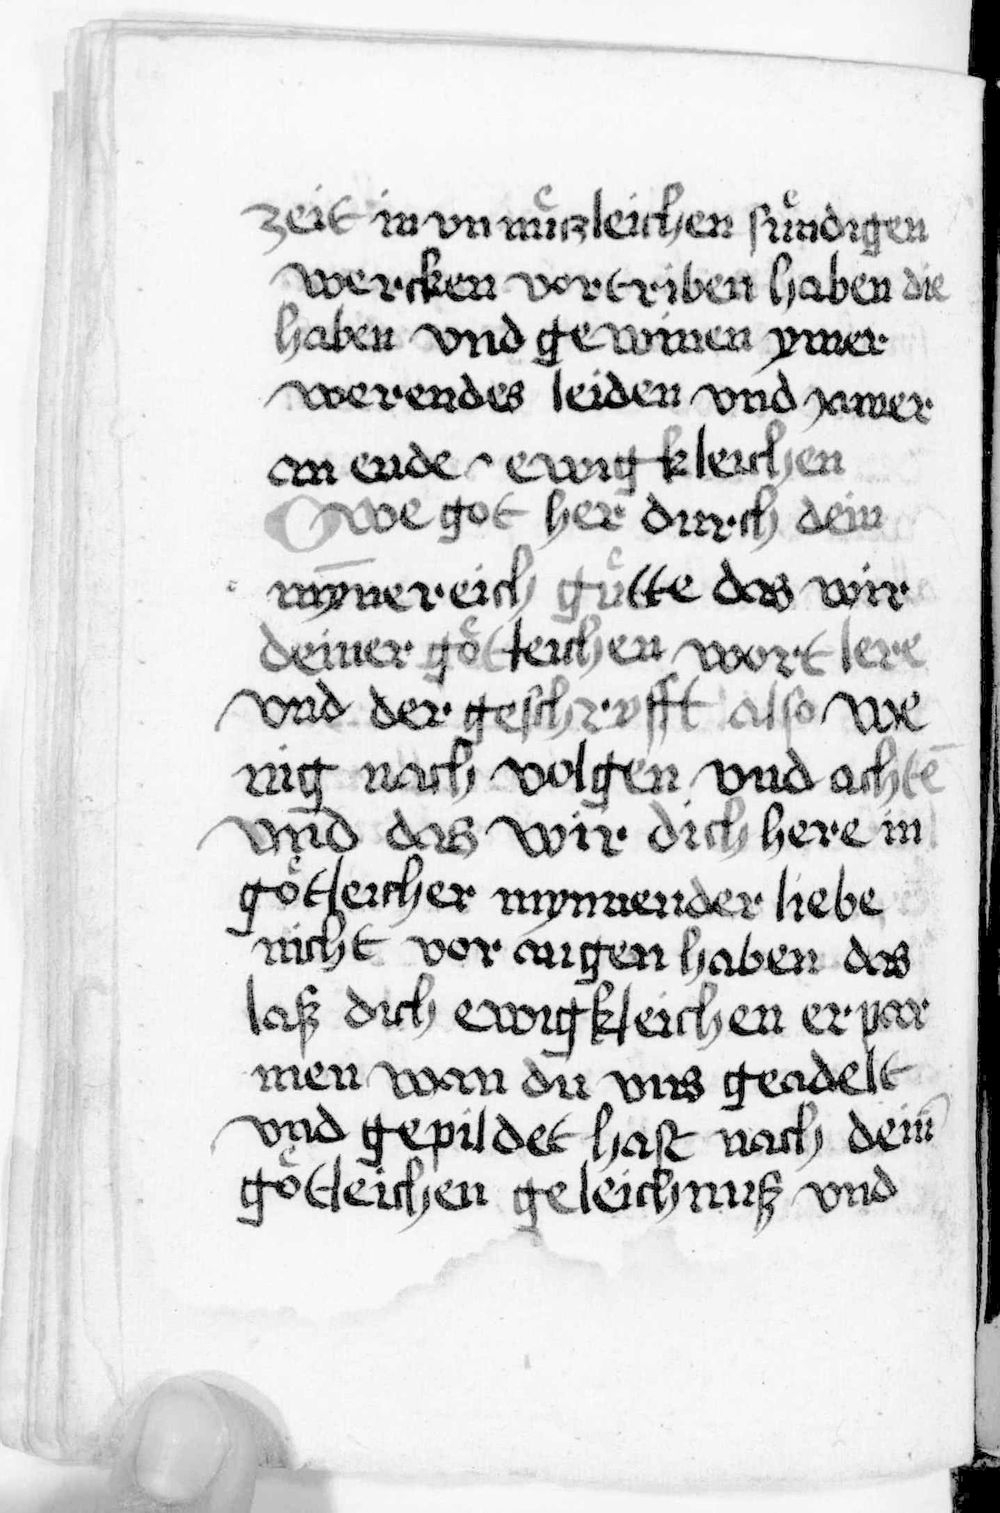 zeit in vn nuͤczleichen suͤndigen
wercken vortriben haben die
haben vnd gewinen ymer
werendes leiden vnd yamer
an ende ewigkleichen
Owe got her durch dein
mȳnereich guͤtte das wir
deiner goͤtleichen wort lere
vnd der geschryfft also we
nig nach volgen vnd achtē
vnd das wir dich here in
goͤtleicher mynnender liebe
nicht vor augen haben das
laß dich ewigkleichen erpar
men wan du vns geadelt
vnd gepildet hast nach deiner
goͤtleichen geleichnuß vnd